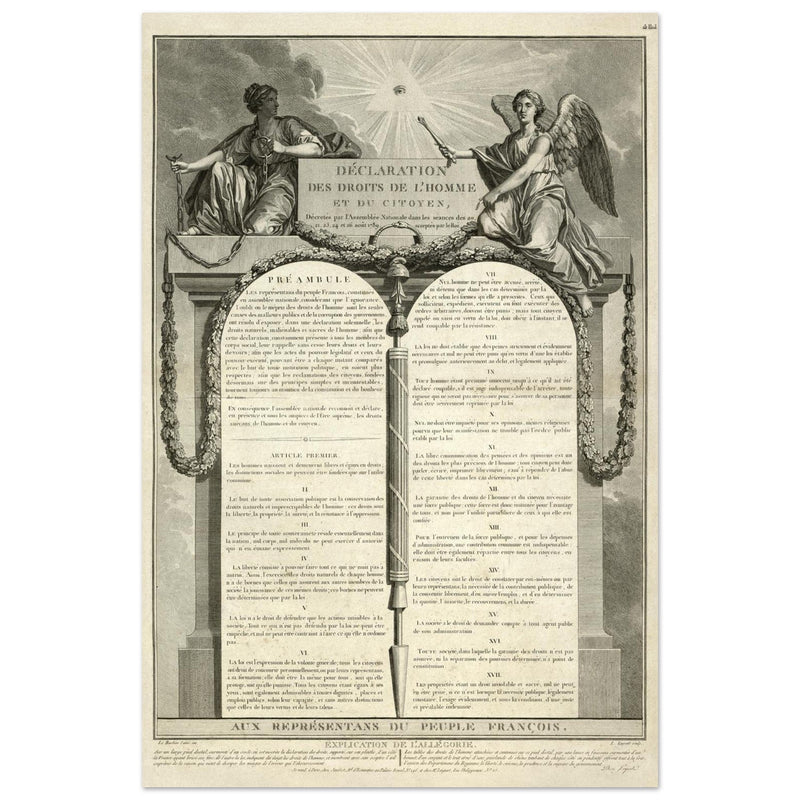 DÉCLARATION
DES DROITS DE L'HOMME
ET DU CITOYEN,
Décretés par l'Assemblée Nationale dans les séances des 20,
21, 23, 24 et 26 août 1789, acceptés par le Roi
PRÉAMBULE
LES représentans du peuple Francois, constitués
en assemblée nationale, considérant que l'ignorance
l'oubli ou le mépris des droits de l'homme sont les seules
causes des malheurs publics et de la corruption des gouvernemens
ont résolu d'exposer, dans une déclaration solemnelle, les
droits naturels, inaliénables et sacrés de l'homme; afin que
cette déclaration, constamment présente à tous les membres du
corps social, leur rappelle sans cesse leurs droits et leurs
devoirs; afin que les actes du pouvoir législatif et ceux du
pouvoir exécutif, pouvant être à chaque instant comparés
avec le but de toute institution politique, en soient plus
respectés; afin que les réclamations des citoyens, fondées
désormais sur des principes simples et incontestables,
tournent toujours au maintien de la constitution et du bonheur
de tous.
EN conséquence, l'assemblée nationale reconnoit et déclare,
en présence et sous les auspices de l'Être suprême, les droits
suivans de l'homme et du citoyen.
ARTICLE PREMIER.
LES hommes naissent et demeurent libres et égaux en droits,
les distinctions sociales ne peuvent être fondées que sur l'utilité
commune.
II.
LE but de toute association politique est la conservation des
droits naturels et imprescriptibles de l'homme; ces droits sont
la liberté, la propriété, la sureté, et la résistance à l'oppression.
III.
LE principe de toute souveraineté réside essentiellement dans
la nation, nul corps, nul individu ne peut exercer d'autorité
qui n'en émane expressément.
IV.
LA liberté consiste à pouvoir faire tout ce qui ne nuit pas à
autrui. Ainsi, l'exercice des droits naturels de chaque homme
n'a de bornes que celles qui assurent aux autres membres de la
société la jouissance de ces mêmes droits; ces bornes ne peuvent
être déterminées que par la loi.
V.
LA loi n'a le droit de défendre que les actions nuisibles à la
société. Tout ce qui n'est pas défendu par la loi ne peut être
empêché, et nul ne peut être contraint à faire ce qu'elle n'ordonne
pas.
VI.
LA loi est l'expression de la volonté générale; tous les citoyens
ont droit de concourir personnellement, ou par leurs représentans,
à sa formation; elle doit être la même pour tous, soit qu'elle
protege, soit qu'elle punisse. Tous les citoyens étant égaux à ses
yeux, sont également admissibles à toutes dignités, places et
emplois publics, selon leur capacité, et sans autres distinctions
que celles de leurs vertus et de leurs talens.
VII.
NUL homme ne peut être accusé, arrêté,
ni détenu que dans les cas déterminés par la
loi, et selon les formes qu'elle a prescrites. Ceux qui
sollicitent, expédient, exécutent ou font exécuter des
ordres arbitraires, doivent être punis; mais tout citoyen
appelé ou saisi en vertu de la loi, doit obéir à l'instant, il se
rend coupable par la résistance.
VIII.
LA loi ne doit établir que des peines strictement et évidemment
nécessaires, et nul ne peut être puni qu'en vertu d'une loi établie
et promulguée antérieurement au délit, et légalement appliquée.
IX.
TOUT homme étant présumé innocent jusqu'à ce qu'il ait été
déclaré coupable, s'il est jugé indispensable de l'arrêter, toute
rigueur qui ne seroit pas nécessaire pour s'assurer de sa personne
doit être sévèrement réprimée par la loi.
X.
NUL ne doit être inquiété pour ses opinions, mêmes religieuses
pourvu que leur manifestation ne trouble pas l'ordre public
établi par la loi.
XI.
LA libre communication des pensées et des opinions est un
des droits les plus précieux de l'homme; tout citoyen peut donc
parler, écrire, imprimer librement; sauf à répondre de l'abus
de cette liberté dans les cas déterminés par la loi.
XII.
LA garantie des droits de l'homme et du citoyen nécessite
une force publique; cette force est donc instituée pour l'avantage
de tous, et non pour l'utilité particulière de ceux à qui elle est
confiée.
XIII.
POUR l'entretien de la force publique, et pour les dépenses
d'administration, une contribution commune est indispensable;
elle doit être également répartie entre tous les citoyens, en
raison de leurs facultés.
XIV.
LES citoyens ont le droit de constater par eux-mêmes ou par
leurs représentans, la nécessité de la contribution publique, de
la consentir librement, d'en suivre l'emploi, et d'en déterminer
la quotité, l'assiette, le recouvrement, et la durée.
XV.
LA société a le droit de demander compte à tout agent public
de son administration.
XVI.
TOUTE société, dans laquelle la garantie des droits n'est pas
assurée, ni la séparation des pouvoirs déterminée, n'a point de
constitution.
XVII.
LES propriétés étant un droit inviolable et sacré, nul ne peut
en être privé, si ce n'est lorsque la nécessité publique, légalement
constatée, l'exige évidemment, et sous la condition d'une juste
et préalable indemnité.
AUX REPRÉSENTANS DU PEUPLE FRANÇOIS.
EXPLICATION DE L'ALLÉGORIE.